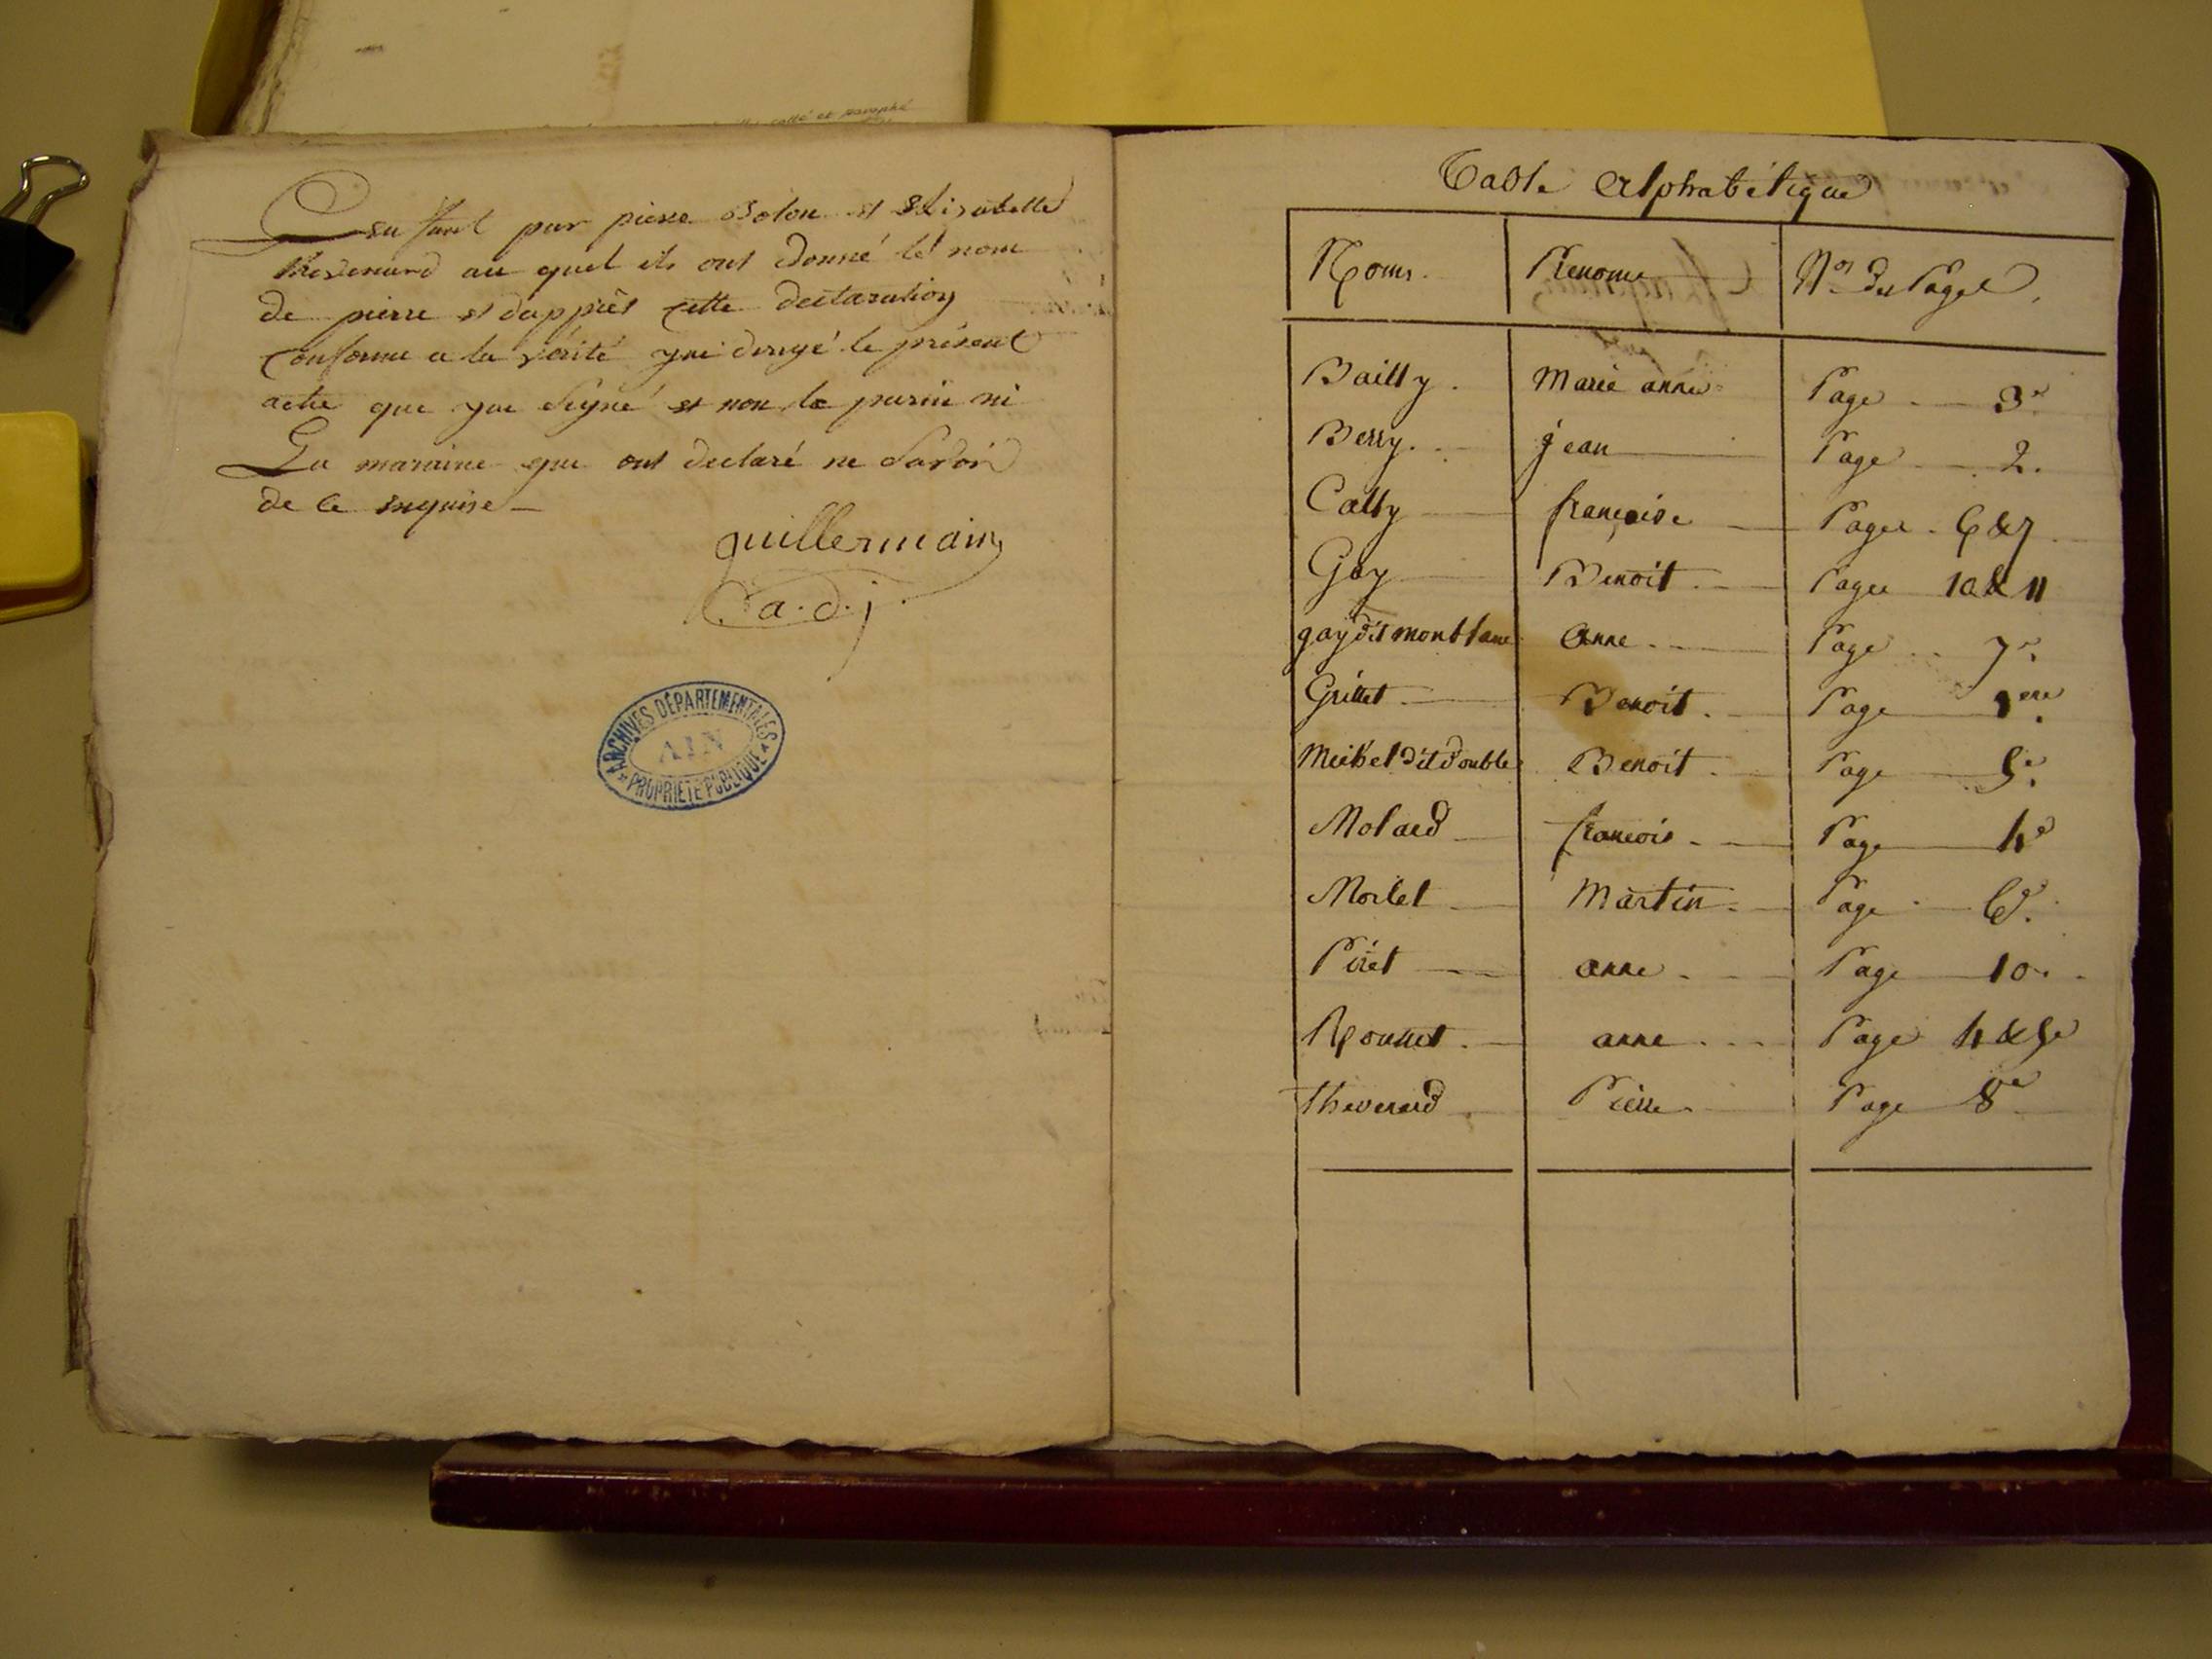 collé et paraphé
enfant par pierre Bolon et Elisabelle
thevenard au quel ils ont donné le nom
de pierre et dapprès cette declaration
Conforme a la vérité jai dirigé le présent
acte que jai signé et non le parin ni
La maraine qui ont declaré ne savoir
de ce enquise
guillermain
a.d.j.
ARCHIVES DÉPARTEMENTALES
AIN
PROPRIÉTÉ PUBLIQUE
Table Alphabétique
Noms. Prenoms Nos des Pages
Bailly. Marie anne Page 3e
Berry. jean Page 2.
Cally françoise Pages 6 & 7
Gay Benoit Pages 10 & 11
gay dit montblanc anne Page 7e
Grillet Benoit Page 1ere
Michel dit double Benoit Page 5e
Molard francois Page 4e
Morlet Martin Page 6e
Piret anne Page 10.
Ronnet anne Page 4 & 5e
thevenard Pierre Page 8e